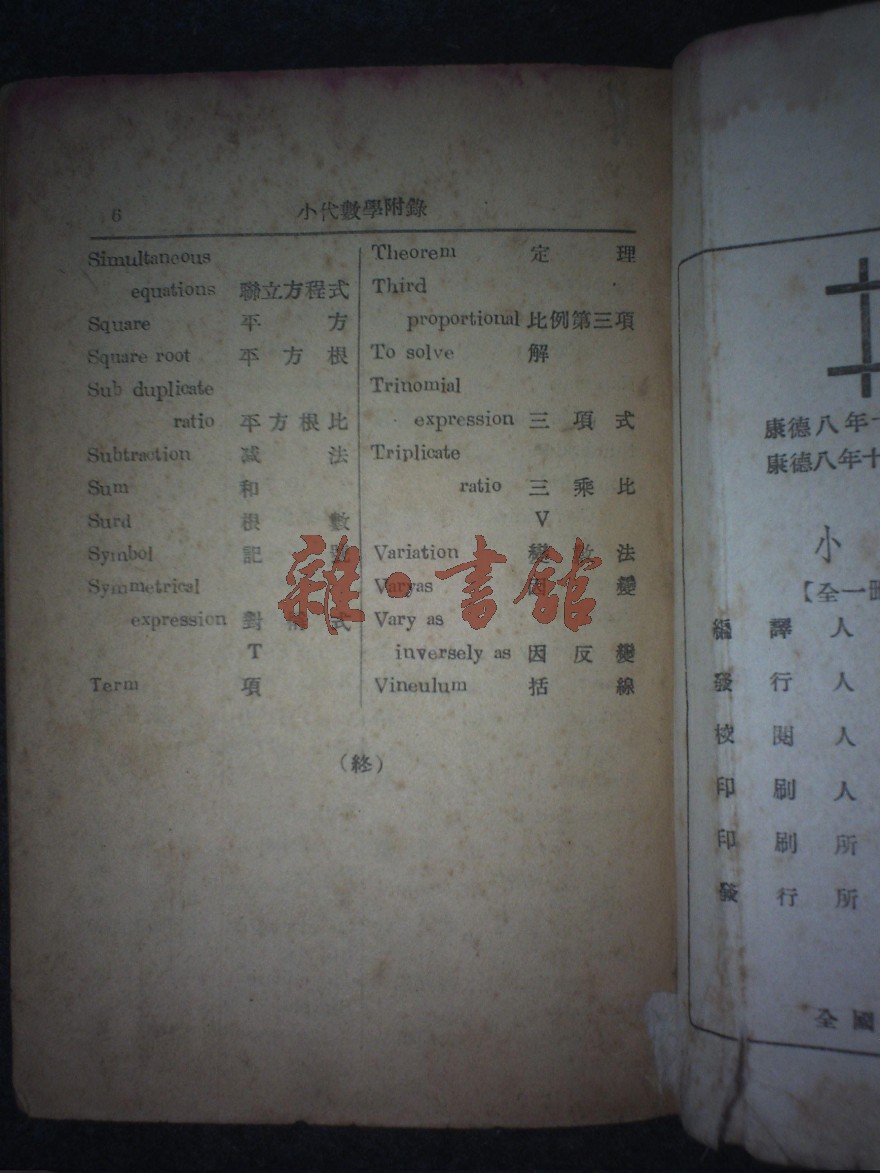 6 小代數學附錄
Simultaneous
equations 聯立方程式
Square 平方
Square root 平方根
Sub duplicate
ratio 平方根比
Subtraction 減法
Sum 和
Surd 根數
Symbol 記
Symmetrical
expression 對式
T
Term 項
Theorem 定理
Third
proportional 比例第三項
To solve 解
Trinomial
expression 三項式
Triplicate
ratio 三乘比
V
Variation 變法
Varyas 因變
Vary as
inversely as 因反變
Vineulum 括線
(終)
雜·書館
康德八年十
康德八年十
小
【全一冊
編譯人
發行人
校閱人
印刷人
印刷所
發行所
全國